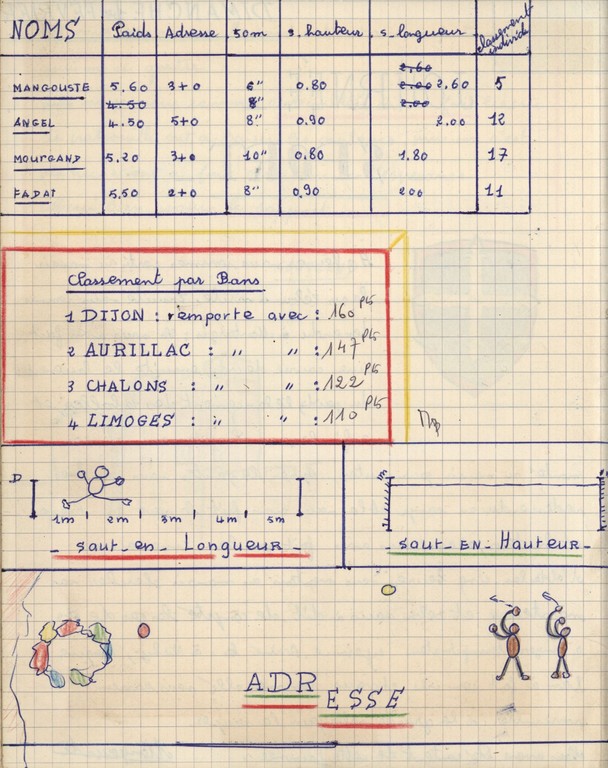 NOMS Poids Adresse 50m s. hauteur s. longueur classement individ.
2,60
MANGOUSTE 5.60 3+0 6" 0.80 2.00 2,60 5
4.50 8" 2.00
ANGEL 4.50 5+0 8" 0.90 2.00 12
MOURGAND 5.20 3+0 10" 0.80 1.80 17
FADAT 5,50 2+0 8" 0,90 200 11
Classement par Bans
1 DIJON : remporte avec : 160 pts
2 AURILLAC : " " : 147 pts
3 CHALONS : " " : 122 pts
4 LIMOGES : " " : 110 pts
D
1m 2m 3m 4m 5m
- saut - en - Longueur -
- saut - EN - Hauteur -
ADRESSE